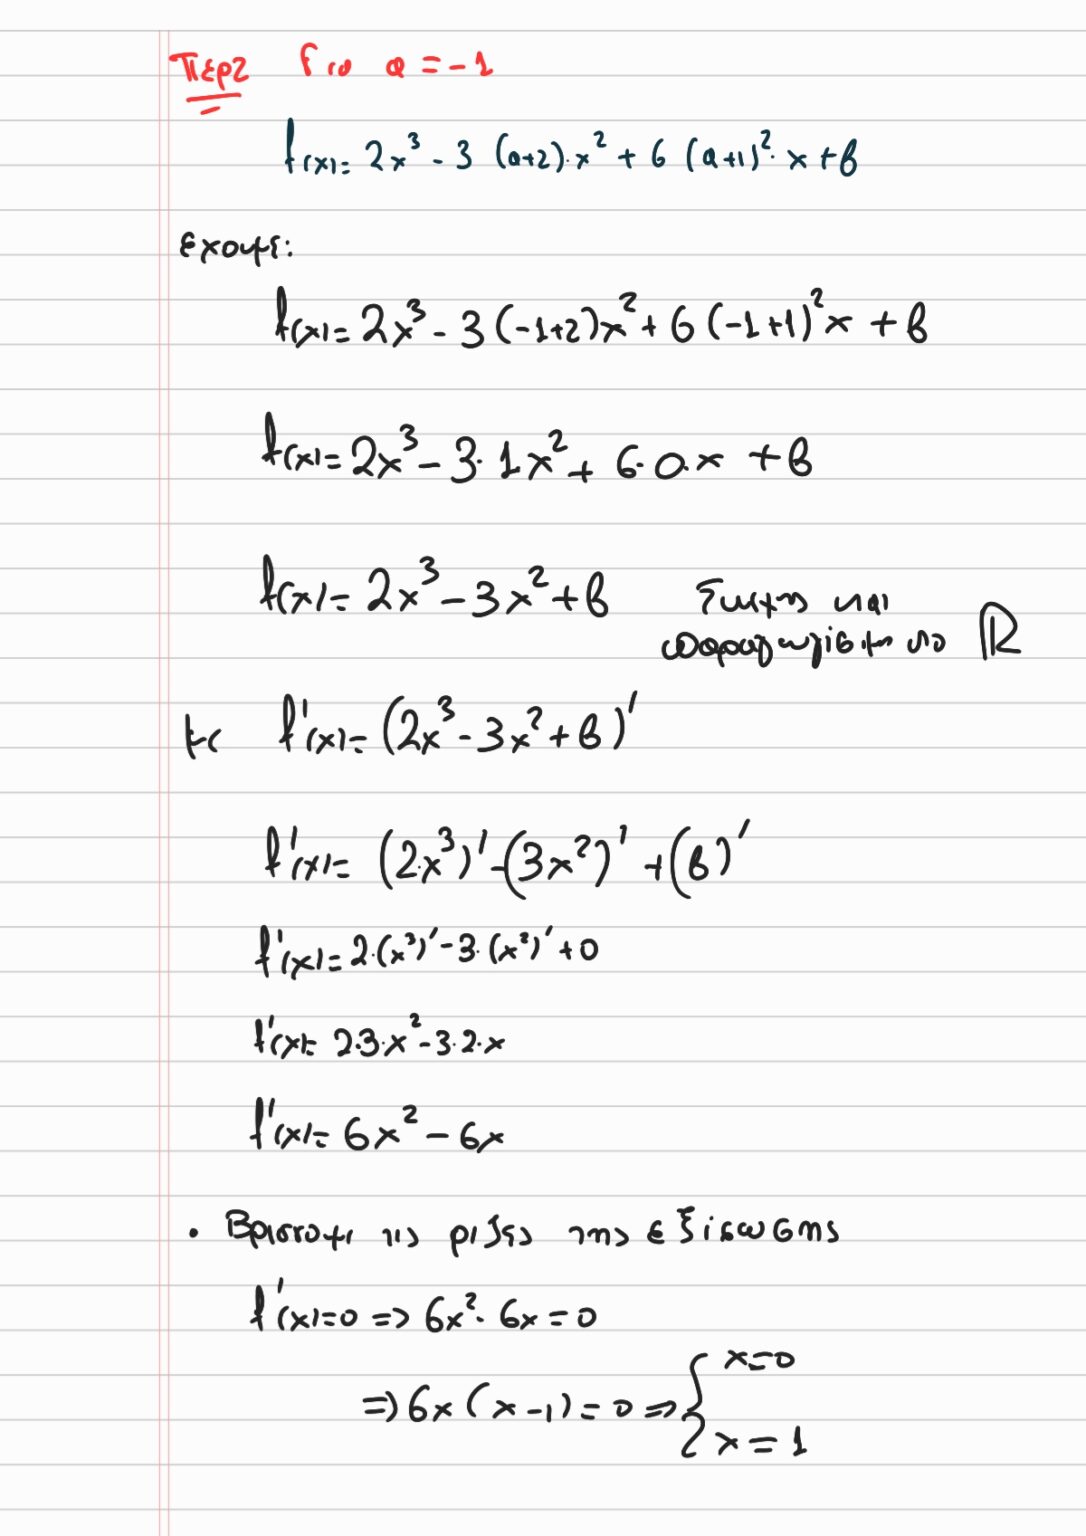 Περ2 Για α = -1
f(x) = 2x³ - 3 (α+2)·x² + 6 (α+1)²·x + β
έχουμε:
f(x) = 2x³ - 3(-1+2)x² + 6(-1+1)²x + β
f(x) = 2x³ - 3·1x² + 6·0·x + β
f(x) = 2x³ - 3x² + β Συνεχής και
παραγωγίσιμη στο ℝ
με f'(x) = (2x³ - 3x² + β)'
f'(x) = (2x³)' - (3x²)' + (β)'
f'(x) = 2·(x³)' - 3·(x²)' + 0
f'(x) = 2·3·x² - 3·2·x
f'(x) = 6x² - 6x
• Βρίσκουμε τις ρίζες της εξίσωσης
f'(x) = 0 => 6x² - 6x = 0
=> 6x (x-1) = 0 => { x=0
x = 1